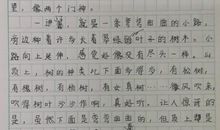 像两个门神。
一进门，就是一条弯弯曲曲的小路，
旁边都着许多长着翠绿的叶子的树木。小
路向上延伸，感觉好像没有尽头一样。山
坡上，树的种类比下面的多，有松树，
有槐树，有柏树，有女真树……像风吹来，
吹得树叶沙沙作响，真好听。让人惊讶的
是，虽然下面是弯弯曲曲的，但是上却是